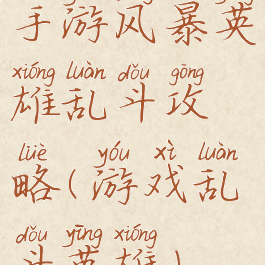 手游风暴英
xióng luàn dǒu gōng
雄乱斗攻
lüè yóu xì luàn
略(游戏乱
dǒu yīng xióng
斗英雄)